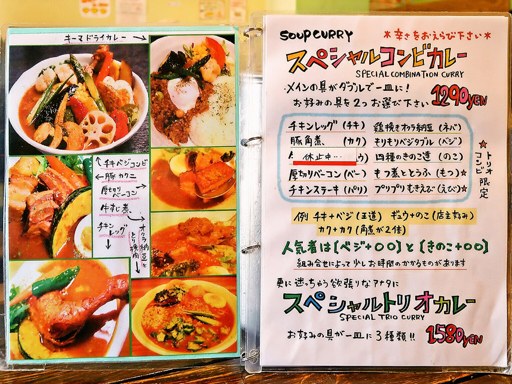 キーマドライカレー→
↑チキベジコンビ
←豚カクニ
厚切りベーコン
牛すじ煮
チキンレッグ
SOUPCURRY
*辛さをおえらび下さい*
スペシャルコンビカレー
SPECIAL COMBINATION CURRY
メインの具がダブルで一皿に!
お好みの具を2つお選び下さい
1290YEN
チキンレッグ(チキ)
豚角煮(カク)
休止中…
厚切りベーコン(ベー)
チキンステーキ(パリ)
もりもりベジタブル(ベジ)
四種のきのこ達(のこ)
もつ煮ととうふ(もつ)☆
プリプリむきえび(えび)☆
☆トリオコンビ限定
例 チキ+ベジ(王道) ギュウ+のこ(店主好み)
カク+カク(角煮が2倍)
人気者は[ベジ+〇〇]と[きのこ+〇〇]
組み合せによって少しお時間のかかるものが有ります
更に迷っちゃう欲張りなアナタに
スペシャルトリオカレー
SPECIAL TRIO CURRY
お好みの具が一皿に3種類!!
1580YEN